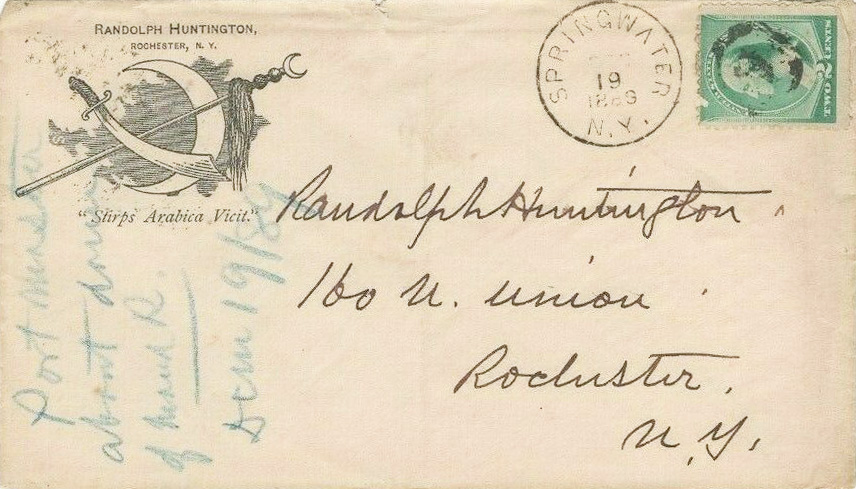 RANDOLPH HUNTINGTON,
ROCHESTER, N. Y.
"Stirps Arabica Vicit."
SPRINGWATER
19
1889
N.Y.
TWO 2 CENTS
Randolph Huntington
160 N. Union
Rochester,
N. Y.
Port Master
about
of Maud R.
Dcm 19/89